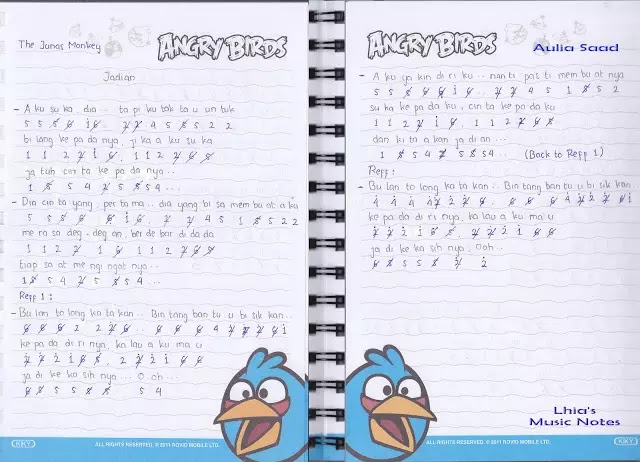 The Junas Monkey
ANGRY BIRDS
Jadian
- A ku su ka, dia .. ta pi ku tak ta u un tuk
5 5 5̸ 6̸ 6̸ 1̇ 6̸ . 7̸ 7̸ 4 5 5̸ 5 2 2
bi lang ke pa da nya, ji ka a ku su ka
1 1 2 7̸ 1̇ 6̸ , 1 1 2 7̸ 6̸ 6̸
ja tuh cin ta ke pa da nya ...
1 5̸ 5 4 7̸ 5 5̸ 5 4 ...
- Dia cin ta yang , per ta ma .. dia yang bi sa mem bu at a ku
5 5 5̸ 6̸ 6̸ 1̇ 6̸ . 7̸ 7̸ 4 5 1 5̸ 5 2 2
me ra sa deg - deg an, ber de bar di da da
1 1 2 7̸ 1 6̸ 1 1 2 7̸ 6̸ 6̸
tiap sa at me ngi ngat nya ...
1 5̸ 5 4 7̸ 5 5̸ 5 4 ...
Reff 1 :
- Bu lan to long ka ta kan .. Bin tang ban tu u bi sik kan ..
6̸ 6̸ 6̸ 2 2 7̸ 6̸ .. 6̸ 6̸ 6̸ 4 7̸ 7̸ 6̸ 1̇
ke pa da di ri nya, ka lau a ku ma u
7̸ 7̸ 2̇ 1̇ 6̸ 5̸ , 2 7̸ 2̇ 1̇ 6̸ 6̸
ja di ke ka sih nya ... O. oh ...
6̸ 6̸ 5 5 5̸ 5̸ 5 4
KKY
ALL RIGHTS RESERVED. © 2011 ROVIO MOBILE LTD.
ANGRY BIRDS
Aulia Saad
- A ku ya kin di ri ku .. nan ti pas ti mem bu at nya
5 5 5̸ 6̸ 6̸ 1̇ 6̸ .. 7̸ 7̸ 4 5 1 5̸ 5 2
su ka ke pa da ku , cin ta ke pa da ku
1 1 2 7̸ 1̇ 6̸ , 1 1 2 7̸ 6̸ 6̸
dan ki ta a kan ja di an ...
1 5̸ 5 4 7̸ 5 5̸ 5 4 .. (Back to Reff 1)
Reff :
- Bu lan to long ka ta kan .. Bin tang ban tu u bi sik kan ..
ke pa da di ri nya, ka lau a ku ma u
7̸ 7̸ 2̇ 1̇ 6̸ 5̸ , 7̸ 7̸ 2̇ 1̇ 6̸ 6̸
ja di ke ka sih nya, O oh ..
6̸ 6̸ 5 5 5̸ 1̇ 2̇
Lhia's
Music Notes
ALL RIGHTS RESERVED. © 2011 ROVIO MOBILE LTD.
KKY